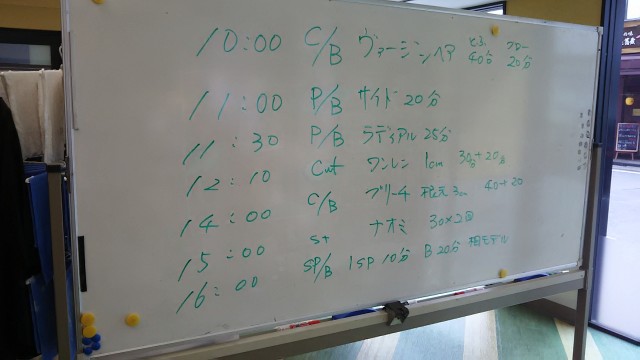 10:00 C/B ヴァージンヘア 40分 ブロー 20分
11:00 P/B サイド 20分
11:30 P/B ラディアル 25分
12:10 Cut ワンレン 1cm 30分+20分
14:00 C/B ブリーチ 根元 3cm 40+20
15:00 St ナオミ 30×2回
16:00 SP/B 1SP 10分 B 20分 相モデル